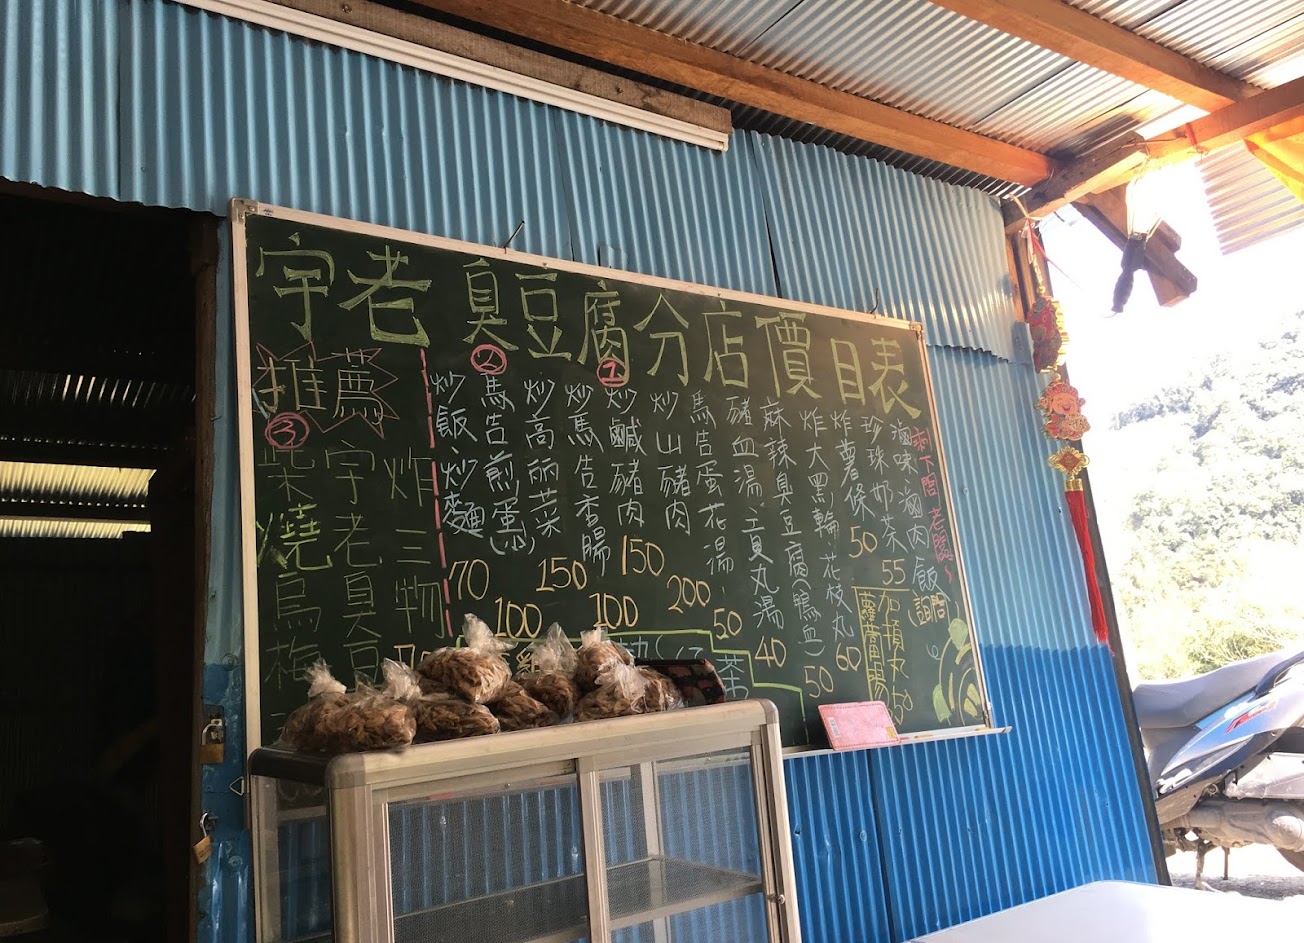 宇老 臭豆腐分店價目表
推薦
③
柴燒烏梅
宇老臭豆
炸三物
炒飯、炒麵 70
②
馬告煎蛋(小) 100
炒高丽菜 150
炒馬告香腸 100
①
炒鹹豬肉 150
炒山豬肉 200
馬告蛋花湯 50
豬血湯、貢丸湯 40
麻辣臭豆腐(鴨血) 50
炸大黑輪、花枝丸 60
炸薯條 50
珍珠奶茶 55
滷味、滷肉飯(詢問)
剩下問老闆~
加摃丸 50
雞
熱
茶